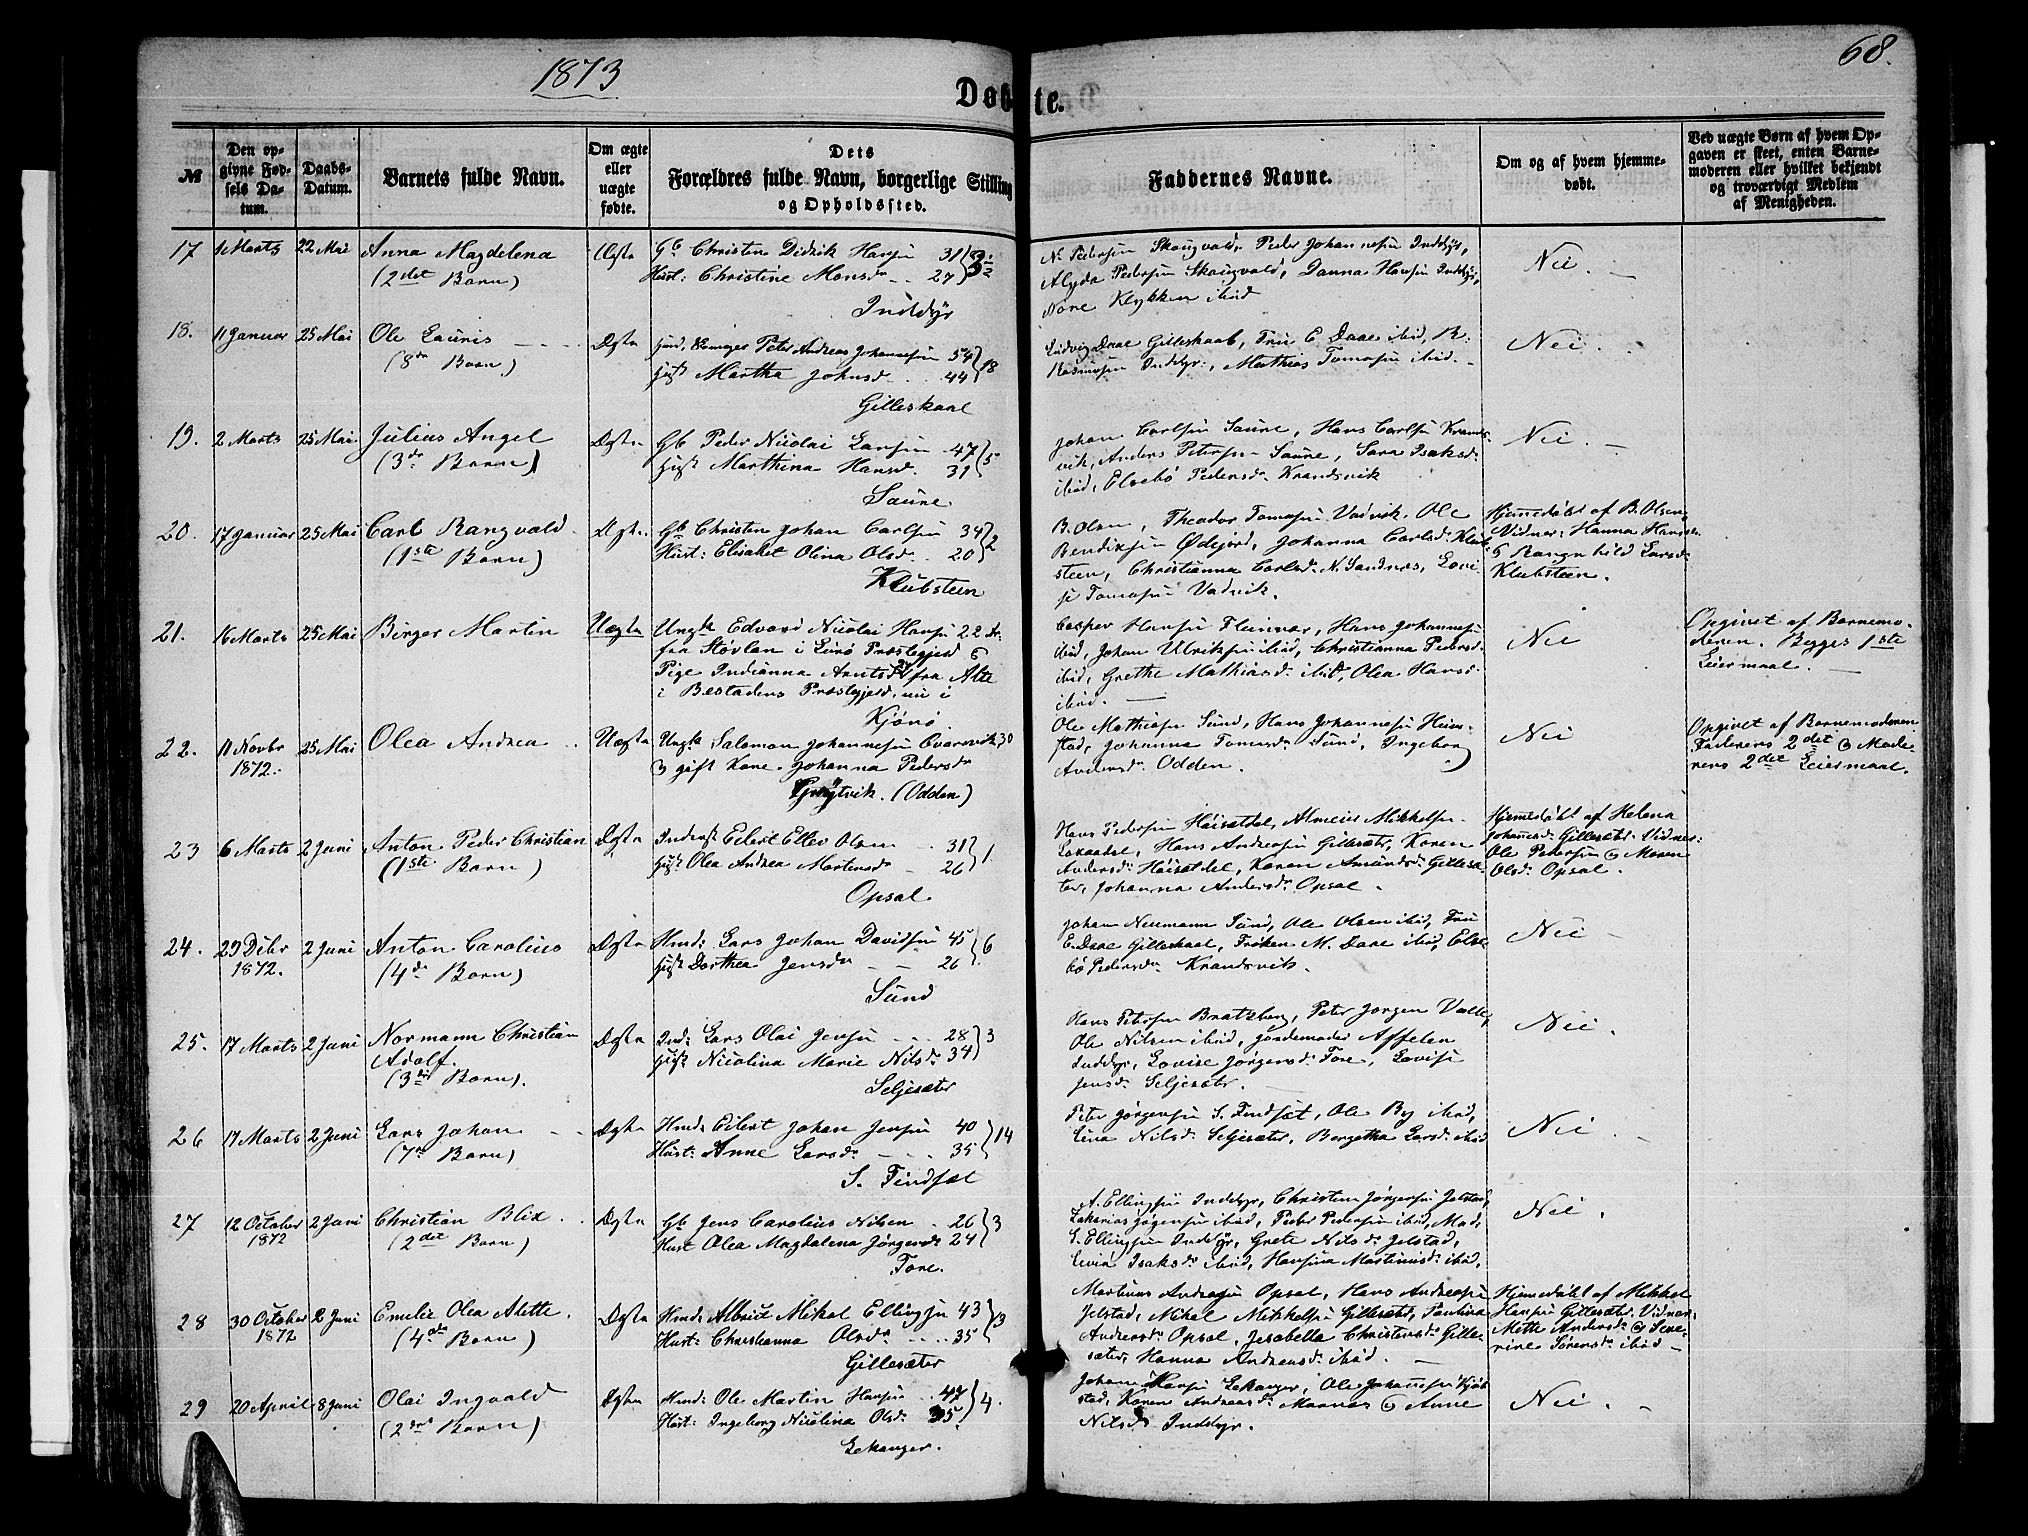 1873
68.
Døbte.
№
Den op-
givne Fød-
sels Da-
tum.
Daabs-
Datum.
Barnets fulde Navn.
Om ægte
eller
uægte
fødte.
Dets
Forældres fulde Navn, borgerlige Stilling
og Opholdssted.
Faddernes Navne.
Om og af hvem hjemme-
døbt.
Ved uægte Børn af hvem Op-
gaven er skeet, enten Barne-
moderen eller hvilket bekjendt
og troværdigt Medlem
af Menigheden.
17 1 Marts 22 Mai Anna Magdelena Ægte Gb Christen Didrik Hansen 31
(2det Barn) Hust: Christine Monsdr 27
Inddyr
N. Pedersen Skougvold, Peder Johannesen Inddyr,
Alyda Pedersen Skougvold, Danna Hansen Inddyr,
Klykken ibid
Nei.
18. 11 Januar 25 Mai Ole Lauris Ægte Peter Andreas Johannesen 54
(8de Barn) Hust Martha Johnsd. 44 18
Gilleskaal
Ludvig Daae Gilleskaal, Fru E. Daae ibid, R.
Rasmusen Inddyr, Mathias Tomasen ibid.
Nei.
19. 2 Marts 25 Mai Julius Angel Ægte Gb Peder Nicolai Larsen 47
(3de Barn) Hust Marthina Hansd. 31 5
Saure
Johan Carlsen Saure, Hans Carlsen Krands-
vik, Anders Petersen Saure, Sara Isaksd.
ibid, Elsebø Pedersd. Krandsvik
Nei.
20. 17 Januar 25 Mai Carl Rangvald Ægte. Gb Christen Johan Carlsen 34
(1ste Barn) Hust: Elisabet Olina Olsd. 20 2
Klubsteen
B. Olsen, Theodor Tomasen Vadvik, Ole
Bendiksen Ødejord, Johanna Carlsd. Klub-
steen, Christianna Carlsd. N. Sandnes, Lovi-
se Tomasen Vadvik.
Hjemedøbt af B. Olsen,
Vidner: Hanna Hansen
& Rangnhild Larsd.
Klubsteen.
21. 16 Marts 25 Mai Birger Martin Uægte Ungk Edvard Nicolai Hansen 22 Ar.
fra Støvlan i Lurø Præstegjeld &
Pige Indianna Arntsdr fra Alte
i Bestadens Præstegjeld, nu i
Kjønø.
Casper Hansen Fleinvær, Hans Johannesen
ibid, Johan Ulriksen ibid, Christianna Pedersd.
ibid, Grethe Mathiasd. ibid, Olea Hansd.
ibid.
Nei
Opgivet af Barnemo-
deren. Begges 1ste
Leiermaal.
22. 11 Novbr 25 Mai Olea Andrea Uægte Ungk Salomon Johannesen Ovarsvik, 30
1872. & gift Kone Johanna Pedersdr
Grøtvik. (Odden)
Ole Mathisen Sund, Hans Johannesen Heim-
stad, Johanna Tomasd. Sund, Ingeborg
Andersd. Odden.
Nei
Opgivet af Barnemoderen
Faderens 2det & Mode-
rens 2det Leiermaal.
23 6 Marts 2 Juni Anton Peder Christian Ægte Inderst Eilert Ellev Olsen 31
(1ste Barn) Hust Olea Andrea Martinusd 26 1.
Opsal.
Hans Pedersen Høisætdel, Almeier Mikkelsen
Laxaadel, Hans Andreasen Gillesæter, Karen
Andersd. Høisætdel, Karen Amundsd. Gillesæ-
ter, Johanna Andersd. Opsal.
Hjemedøbt af Helena
Johannsd. Gillesæter. Vidner
Ole Pedersen & Maren
Olsd. Opsal.
24. 29 Debr 2 Juni Anton Carolius Ægte Hmd: Lars Johan Davidsen 45
1872. (4de Barn) Hust Dorthea Jensdr 26 6
Sund
Johan Neumann Sund, Ole Olsen ibid, Fru
E. Daae Gilleskaal, Frøken M. Daae ibid, Else-
bø Pedersd. Krandsvik.
Nei
25. 17 Marts 2 Juni Normann Christian Ægte Ind: Lars Olai Jensen 28 3
Adolf. Hust Nicolina Marie Nilsd. 34
(3die Barn). Seljesæter
Hans Petersen Bratberg, Peter Jørgen Valle,
Ole Nilsen ibid, Jordemoder Affelen
Inddyr, Lovise Jørgensd. Fore, Lovise
Jensd. Seljesæter.
Nei.
26 17 Marts 2 Juni Lars Johan Ægte Hmd: Eilert Johan Jensen 40
(7de Barn) Hust: Anne Larsdr 35 14
S. Findset
Peter Jørgensen S. Findset, Ole By ibid,
Lina Nilsd. Seljesæter, Bergetha Larsd. ibid
Nei.
27 12 October 2 Juni Christian Blix Gb Jens Carolius Nilsen 26 3
1872 (2det Barn) Ægte Hust Olea Magdalena Jørgensd 24
Fore.
A. Ellingsen Inddyr, Christen Jørgensen Jelstad,
Zakarias Jørgensen ibid, Peder Pedersen ibid, Mad.
S. Ellingsen Inddyr, Grete Nilsd. Jelstad,
Isaksd. ibid, Hansina Martinusd. ibid,
Nei.
28 30 October 2 Juni Emelie Olea Alette Ægte Hmd: Albrict Mikal Ellingsen 43
1872 (4de Barn) Hust: Christianna Olsdr 35 3
Gillesæter
Martinus Andreasen Opsal, Hans Andreasen
Jelstad, Mikal Mikkelsen Gillesæter, Paulina
Andreasd. Opsal, Jesabella Christensd. Gille-
sæter, Hanna Andreasd. ibid.
Hjemedøbt af Mikkel
Hansen Gillesæter. Vidner
Mette Andersd. & Seve-
rine Sørensd. ibid
29 20 April 8 Juni Olai Ingvald Ægte Hmd: Ole Martin Hansen 47
(2det Barn) Hust: Ingeborg Nicolina Olsd. 35 4.
Lekanger.
Johan Hansen Lekanger, Ole Johansen Kjøl-
stad, Karen Andreasd. Marnæs & Anne
Nilsd. Inddyr.
Nei.